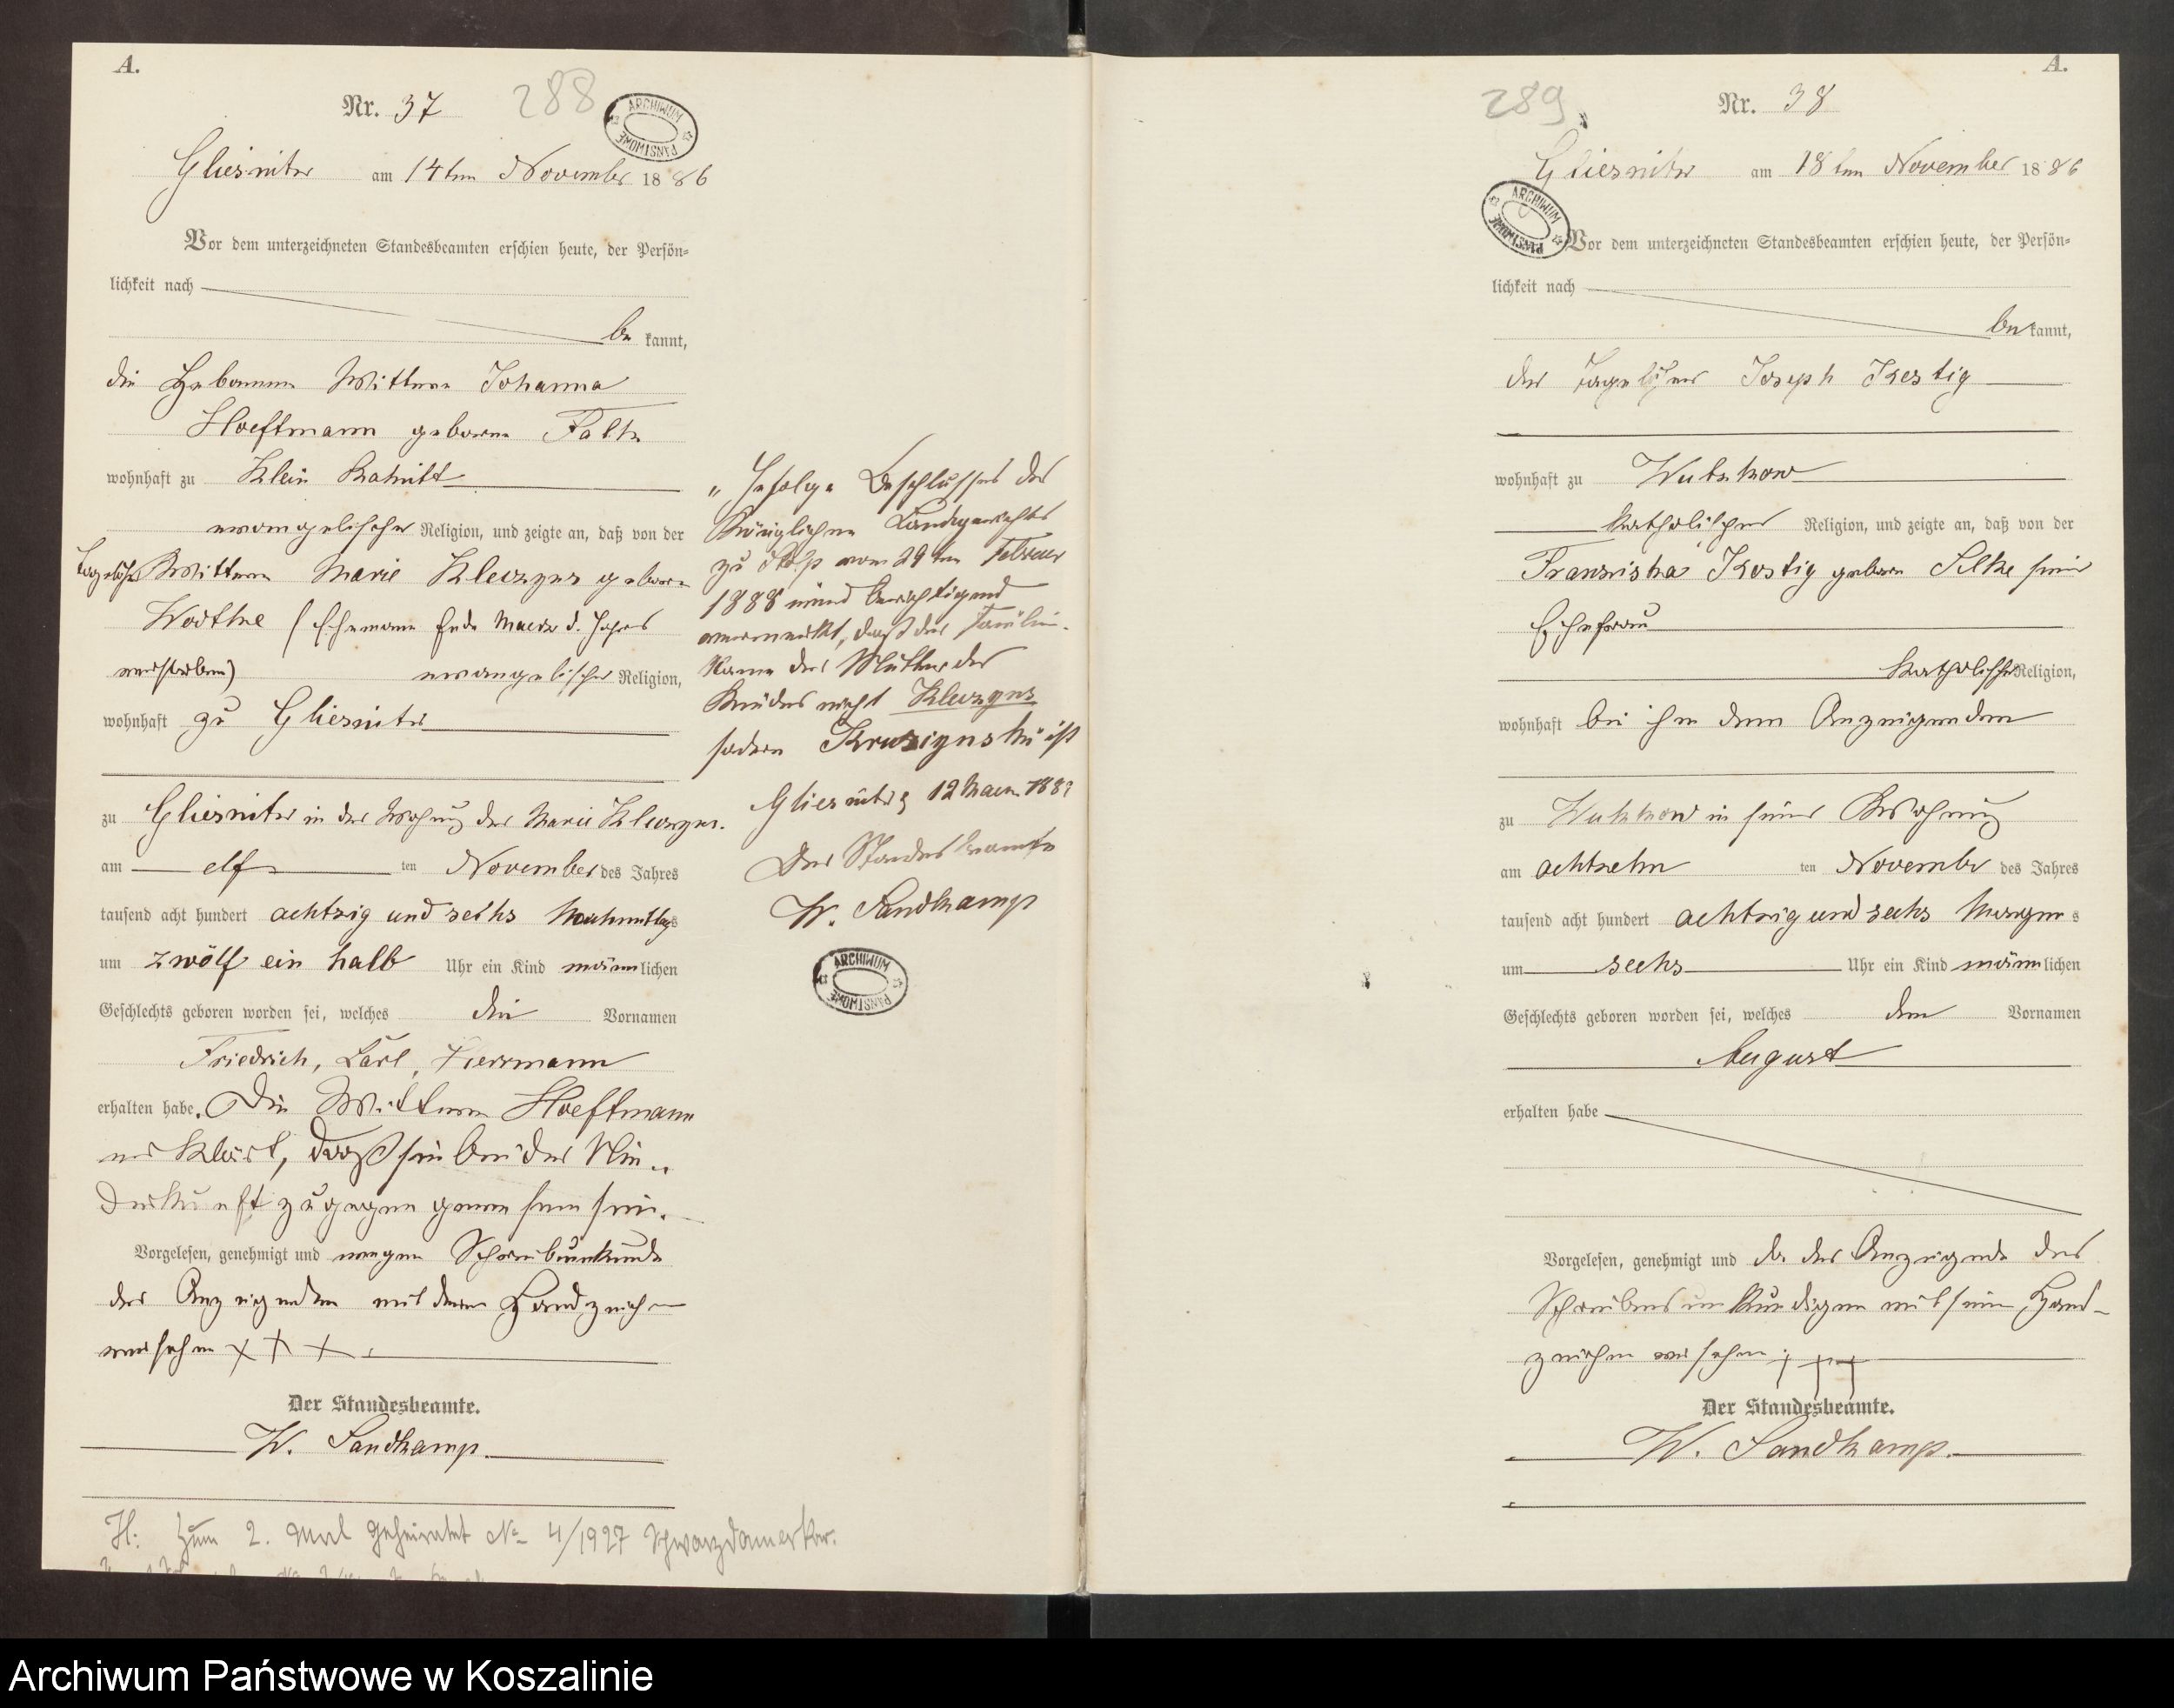 A.
Nr. 37
288
ARCHIWUM PAŃSTWOWE
Gliesnitz am 14ten November 1886
Vor dem unterzeichneten Standesbeamten erschien heute, der Persön=
lichkeit nach
be kannt,
die Hebamme Wittwe Johanna
Hoeftmann geborne
wohnhaft zu Klein
evangelischer Religion, und zeigte an, daß von der
Wittwe Marie Kleczyns geborne
(Ehemann Ende Maerz d. Jahres
verstorben) evangelischer Religion,
wohnhaft zu Gliesnitz
zu Gliesnitz in der Wohnung der Marie Kleczyns.
am elf ten November des Jahres
tausend acht hundert achtzig und sechs Nachmittags
um zwölf ein halb Uhr ein Kind männlichen
Geschlechts geboren worden sei, welches die Vornamen
Friedrich, Carl, Herrmann
erhalten habe. Die Wittwe Hoeftmann
erklärt, daß sie bei der Nie„
derkunft zugegen gewesen sei.
Vorgelesen, genehmigt und wegen Schreibunkunde
der Anzeigenden mit deren Handzeichen
versehen + + +.
Der Standesbeamte.
W. Sandkamp.
H: Zum 2. Mal geheiratet No 4/1927 Schwarzdamerkow.
„Infolge Beschlusses des
Königlichen Landgerichts
zu Stolp vom 29ten Februar
1888 wird berichtigend
vermerkt, daß der Familien-
Name der Mutter des
Kindes nicht Kleczyns
sodern Kruszynski ist
Gliesnitz, 12 Maerz
Der Standesbeamte
W. Sandkamp
ARCHIWUM PAŃSTWOWE
A.
289
Nr. 38
Gliesnitz am 18ten November 1886
ARCHIWUM PAŃSTWOWE
Vor dem unterzeichneten Standesbeamten erschien heute, der Persön=
lichkeit nach
be kannt,
der Tagelöhner Joseph
wohnhaft zu Wutzkow
katholischer Religion, und zeigte an, daß von der
Franziska geborne Silke seiner
Ehefrau
katholischer Religion,
wohnhaft bei ihm dem Anzeigenden
zu Wutzkow in seiner Wohnung
am achtzehn ten November des Jahres
tausend acht hundert achtzig und sechs Morgens
um sechs Uhr ein Kind männlichen
Geschlechts geboren worden sei, welches den Vornamen
August
erhalten habe
Vorgelesen, genehmigt und da der Anzeigende des
Schreibens unkundigen mit sein Hand-
zeichen versehen. + + +
Der Standesbeamte.
W. Sandkamp.
Archiwum Państwowe w Koszalinie